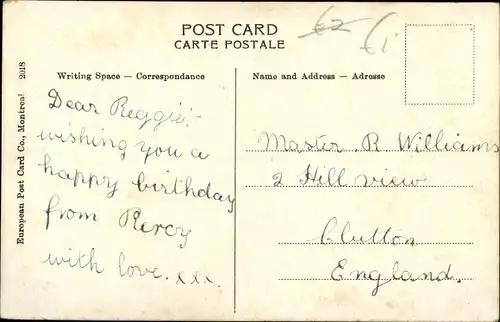 POST CARD
CARTE POSTALE
€2
€1
Writing Space — Correspondance
Name and Address — Adresse
Dear Reggie:-
wishing you a
happy birthday
from Percy
with love. x x x.
Master R Williams
2 Hill view
Clutton
England.
European Post Card Co., Montreal 2018